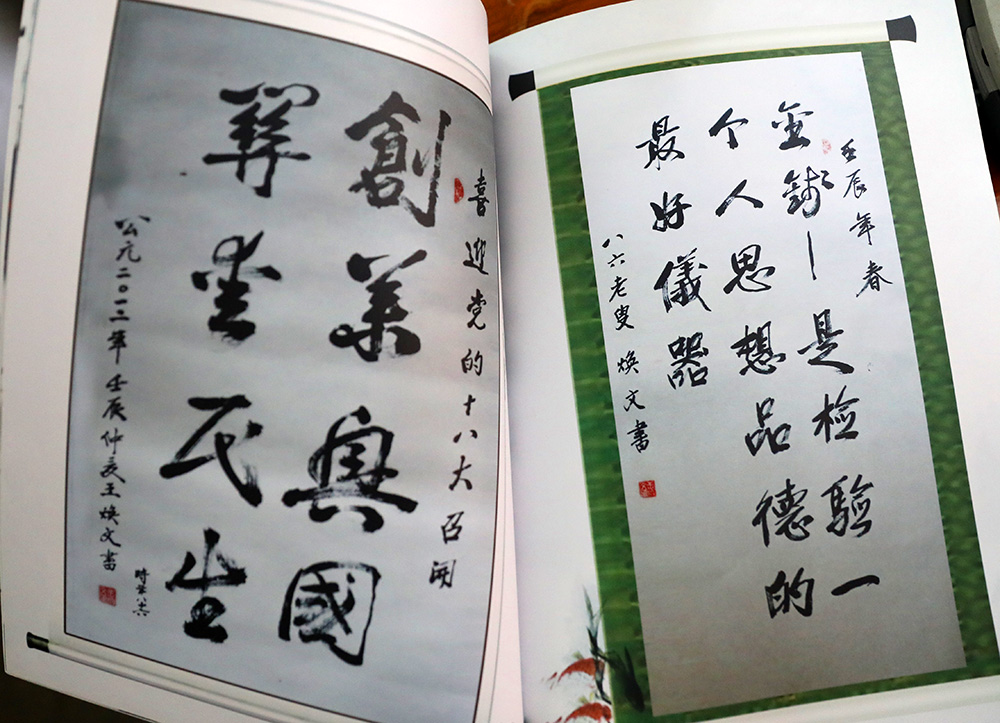 喜迎党的十八大召開
創業興國
關愛民生
公元二〇一二年壬辰仲夏王焕文書
時年八六
壬辰年春
金錢—是检驗一
个人思想品德的
最好儀器
八六老叟焕文書